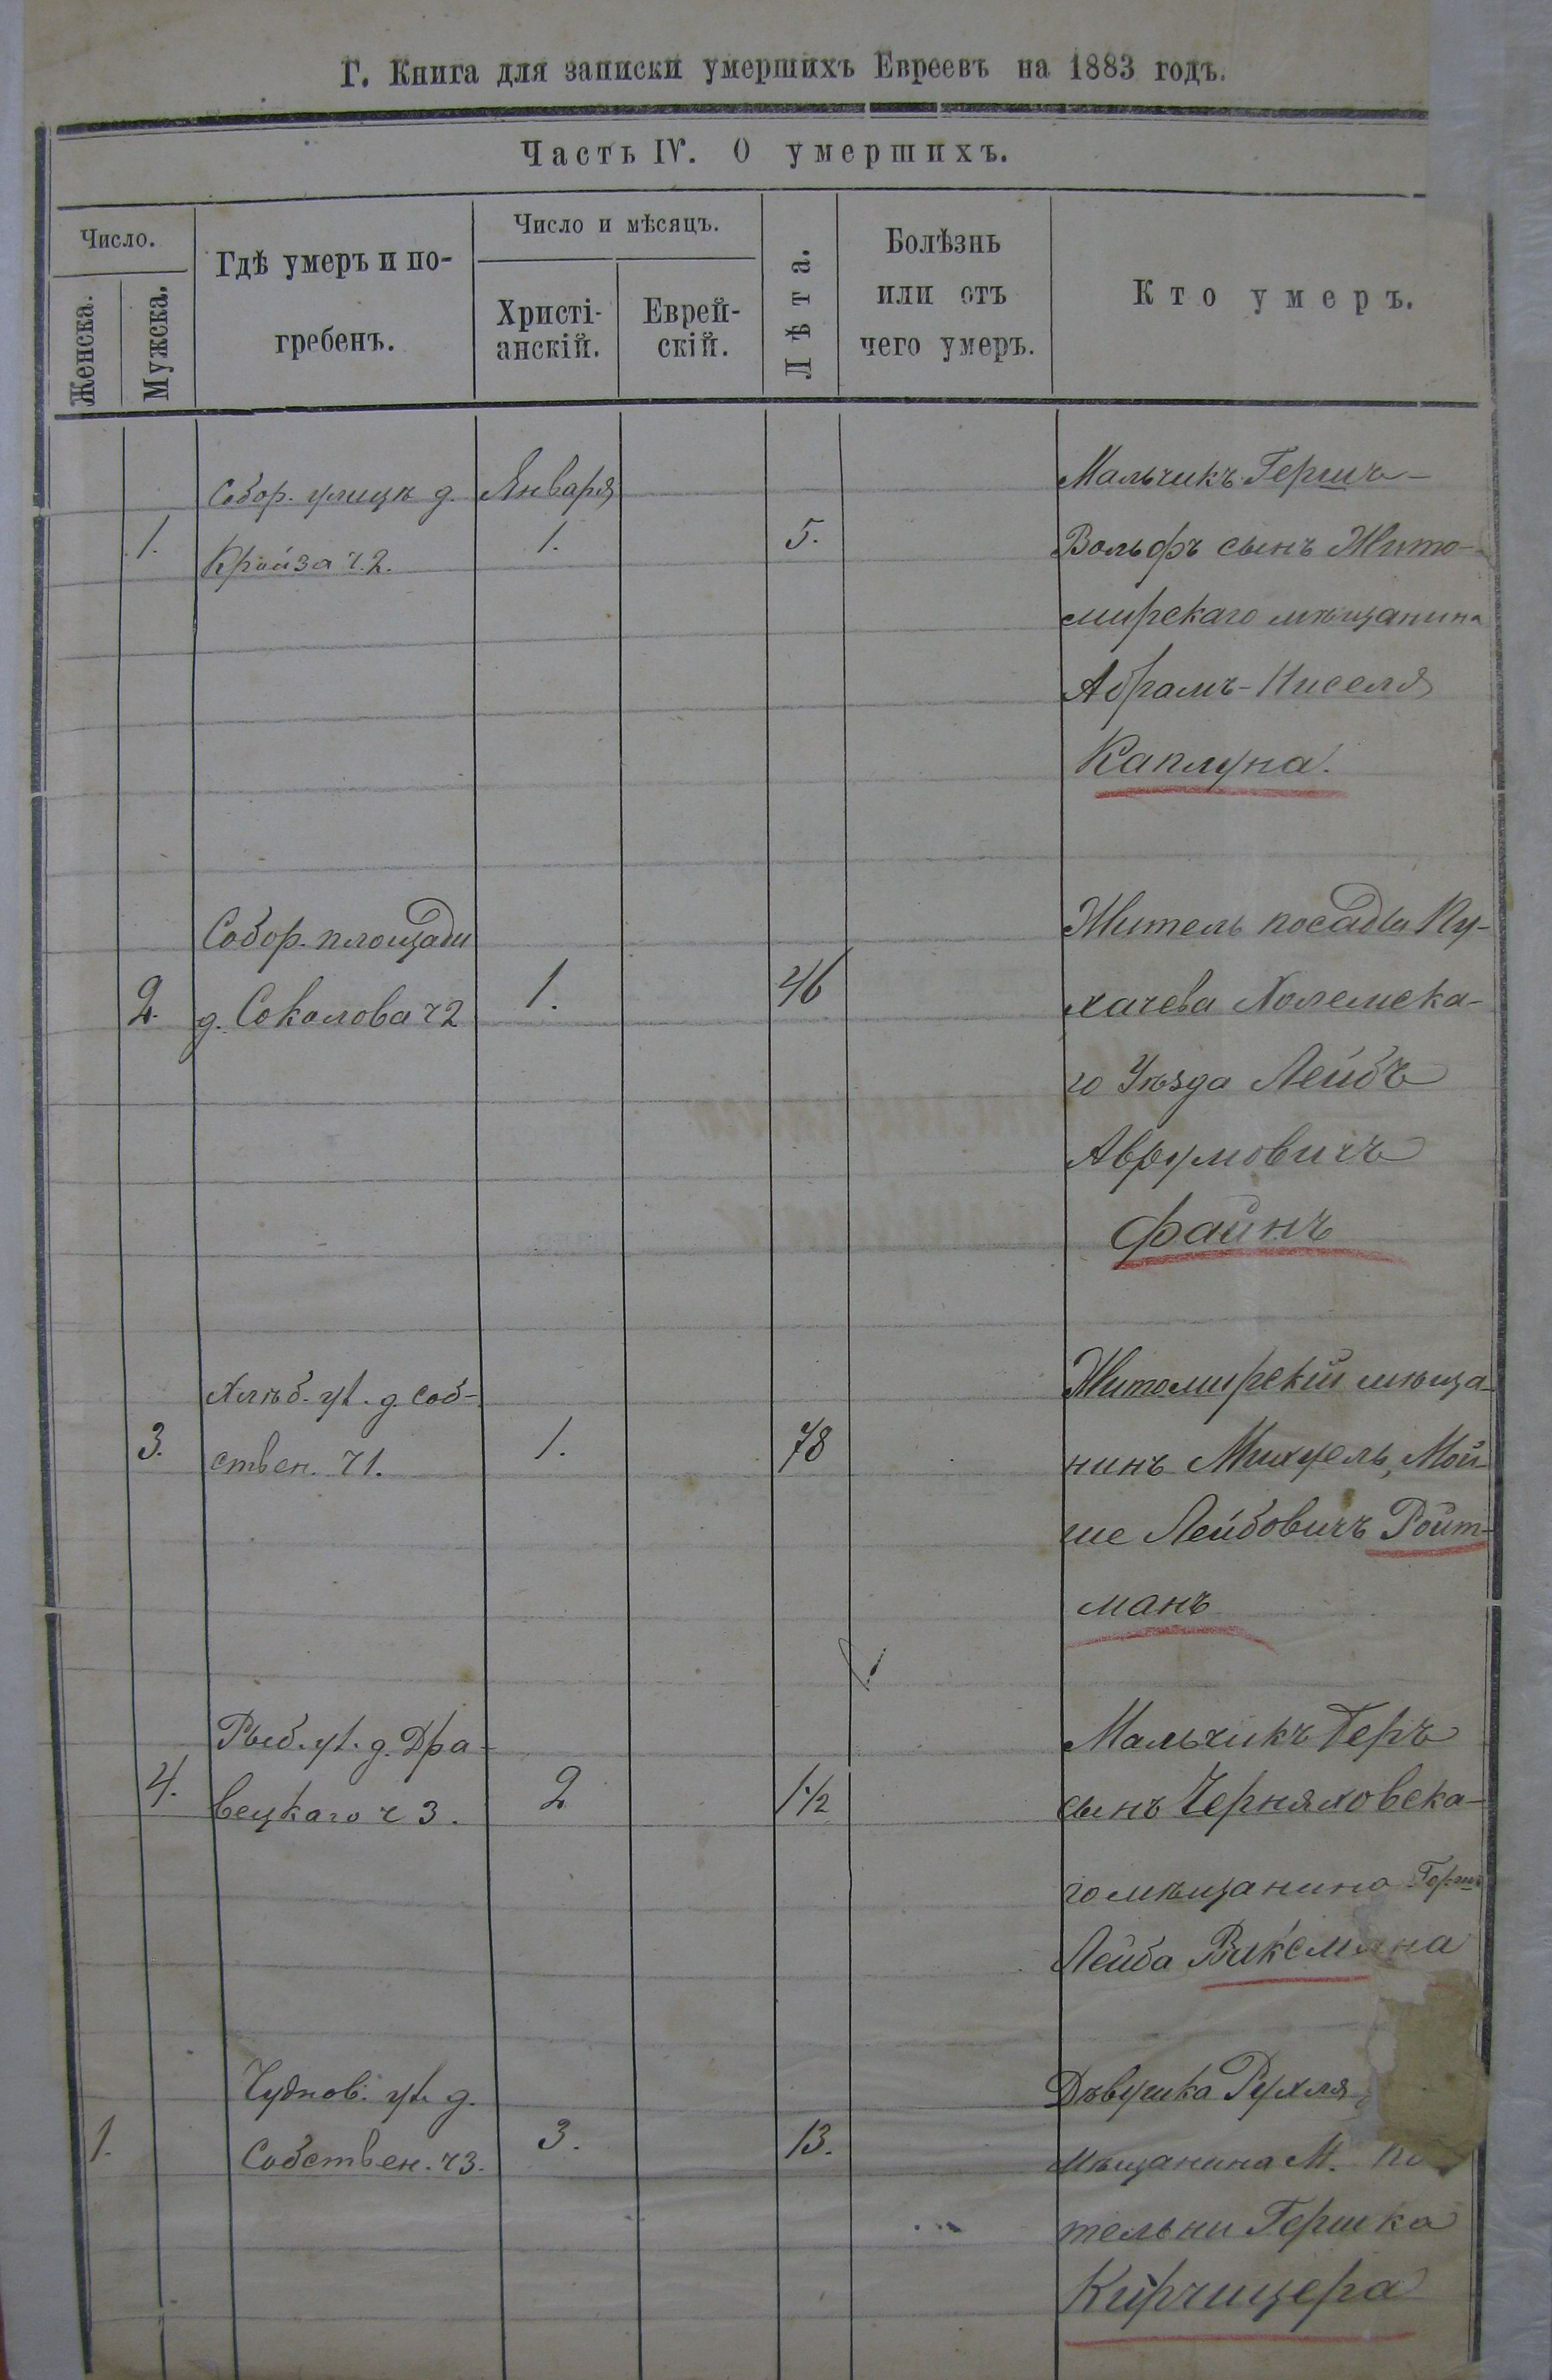 Г. Книга для записки умершихъ Евреевъ на 1883 годъ.
Часть IV. О умершихъ.
Число.
Женска.
Мужска.
Гдѣ умеръ и по-
гребенъ.
Число и мѣсяцъ.
Христі-
анскій.
Еврей-
скій.
Лѣта.
Болѣзнь
или отъ
чего умеръ.
Кто умеръ.
1.
Собор. улицѣ д.
Кройза ч. 2.
Января
1.
5.
Мальчикъ Гершъ-
Вольфъ сынъ Жито-
мирскаго мѣщанина
Абрамъ-Киселя
Каплуна.
2.
Собор. площади
д. Соколова ч 2
1.
46
Житель посада Пу-
хачева Холмска-
го Уѣзда Лейбъ
Аврумовичъ
Файнъ
3.
Хлѣб. ул. д. соб-
ствен. ч 1.
1.
78
Житомирскій мѣща-
нинъ Михель, Мой-
ше Лейбовичъ Ройт-
манъ
4.
Рыб. ул. д. Дра-
вецкаго ч 3.
2
1 1/2
Мальчикъ Беръ
сынъ Черняховска-
го мѣщанина Герш
Лейба Ваксмана
1.
Чуднов. ул. д.
Собствен. ч 3.
3.
13.
Дѣвушка Рухля
мѣщанина М.
тельни Гершка
Кирчицера